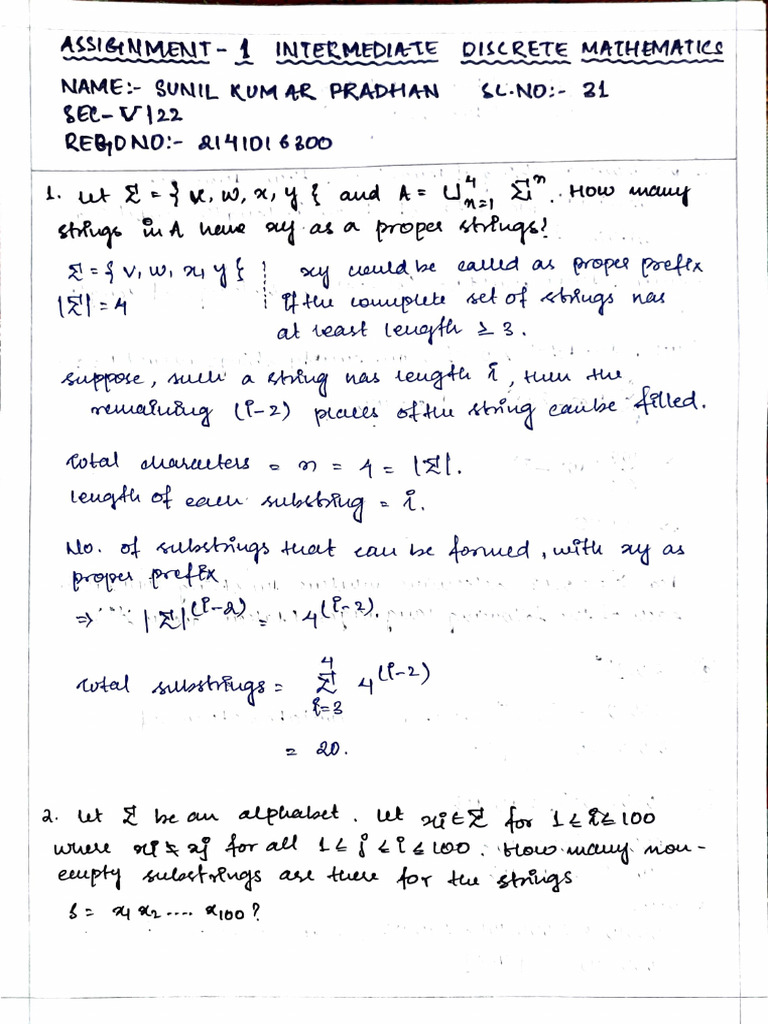 ASSIGNMENT - 1 INTERMEDIATE DISCRETE MATHEMATICS
NAME:- SUNIL KUMAR PRADHAN SL.NO:- 31
SEC- V/22
REGD NO:- 2141016300
1. Let Σ = { v, w, x, y { and A = ∪⁴ₙ₌₁ Σⁿ. How many
strings in A have xy as a proper strings?
Σ = { v, w, x, y { xy would be called as proper prefix
|Σ| = 4 if the complete set of strings has
at least length ≥ 3.
suppose, such a string has length i, then the
remaining (i-2) places of the string can be filled.
Total characters = n = 4 = |Σ|.
length of each substring = i.
No. of substrings that can be formed, with xy as
proper prefix
⇒ |Σ|^(i-2) = 4^(i-2).
Total substrings = 4 Σ i=3 4^(i-2)
= 20.
2. Let Σ be an alphabet. Let xi ∈ Σ for 1 ≤ i ≤ 100
where xi ≠ xj for all 1 ≤ j ≤ i ≤ 100. How many non-
empty substrings are there for the strings
S = x1 x2 .... x100?